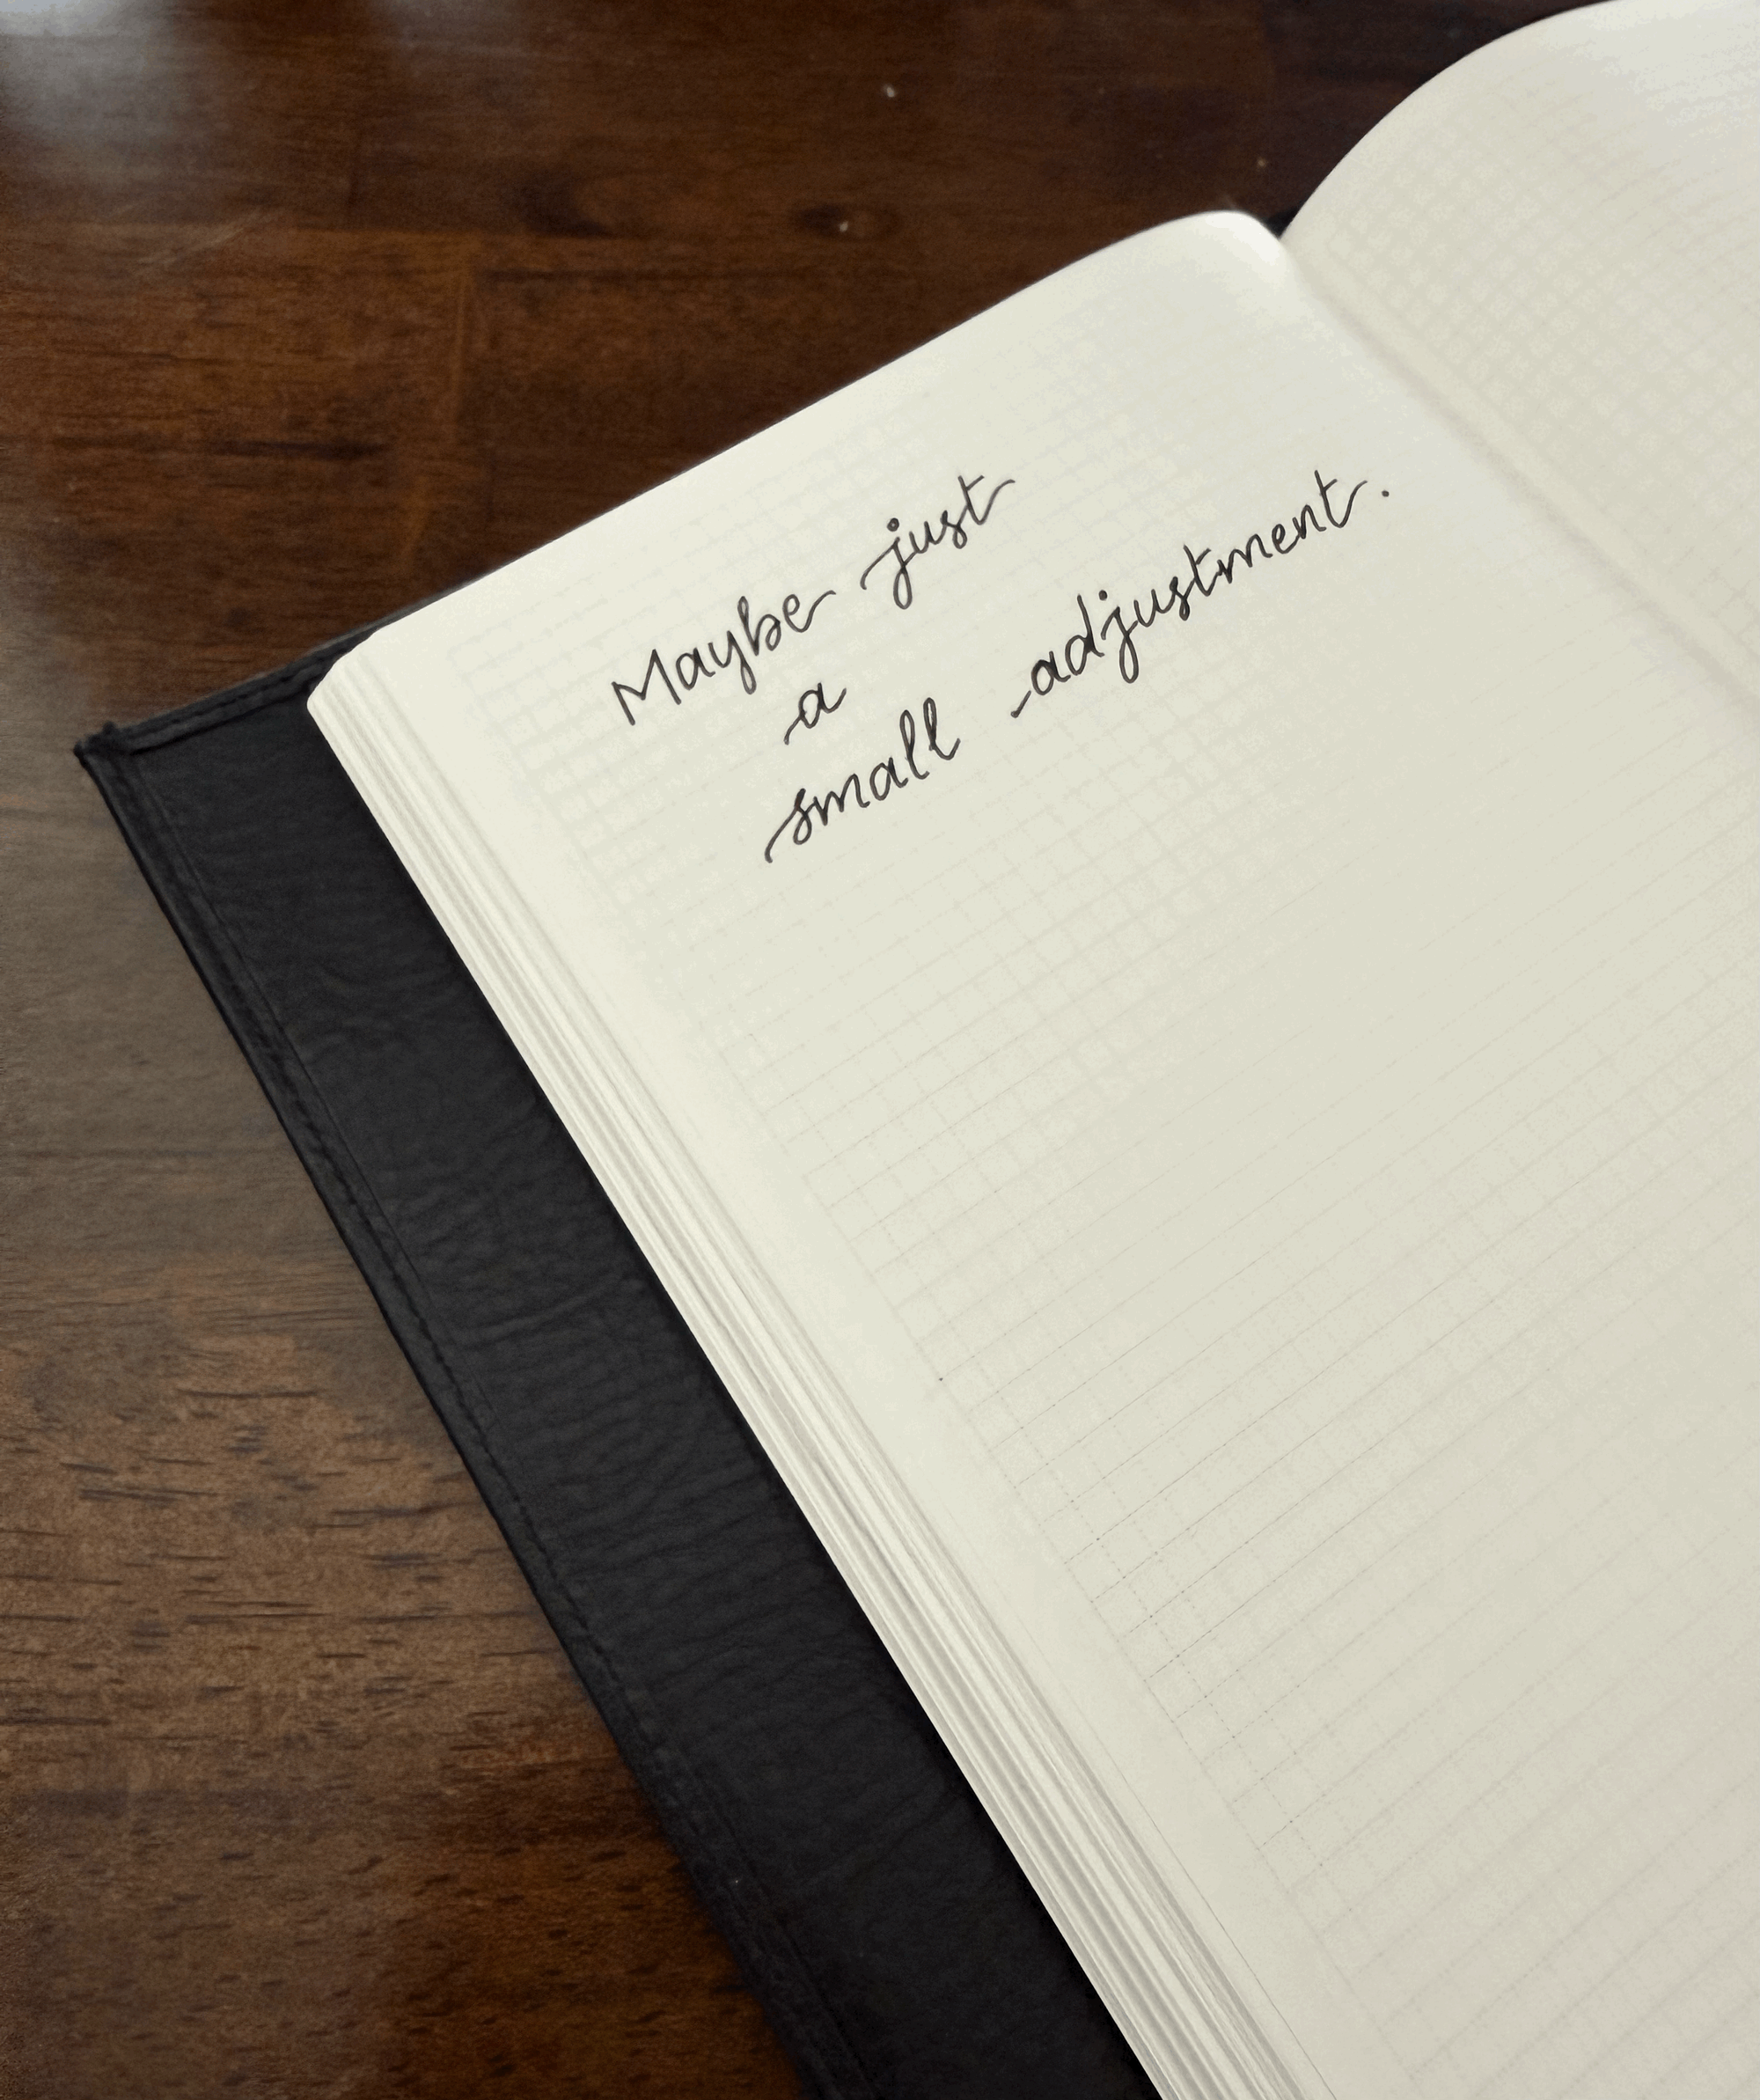 Maybe just
a
small adjustment.